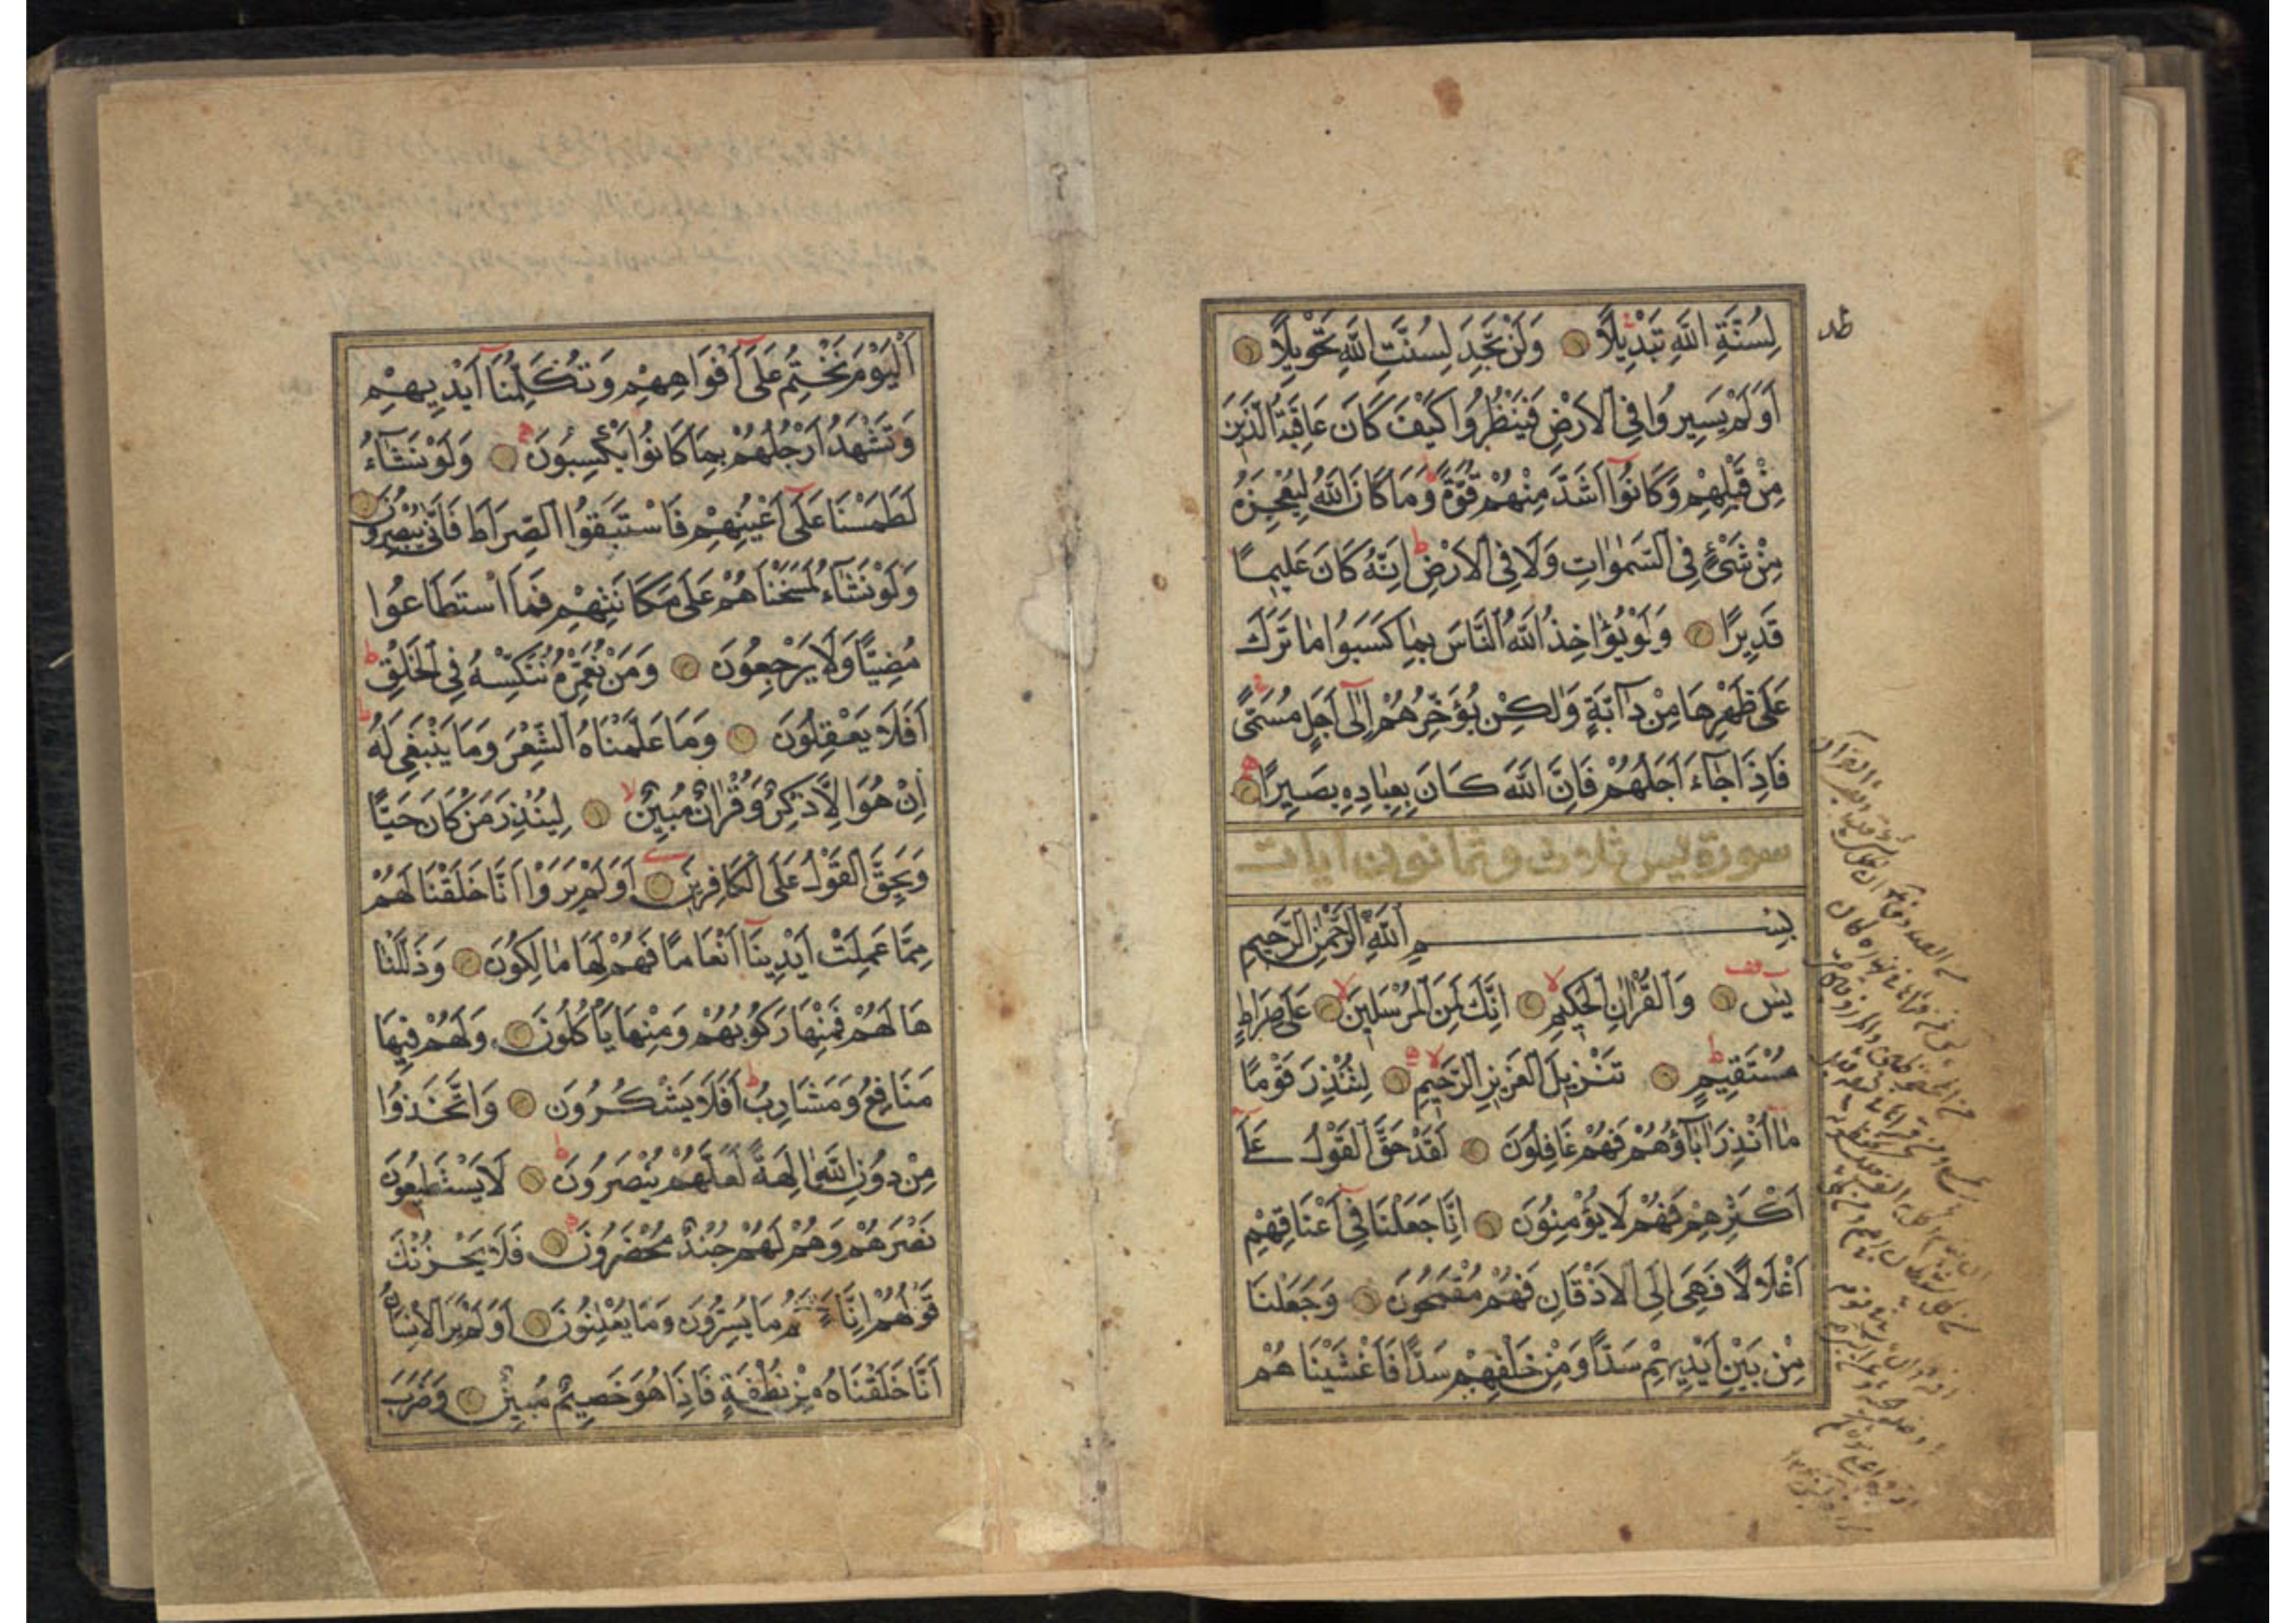 لِسُنَّةِ اللّٰهِ تَبْدِيلًا وَلَنْ تَجِدَ لِسُنَّتِ اللّٰهِ تَحْوِيلًا
اَوَلَمْ يَسِيرُوا فِي الْاَرْضِ فَيَنْظُرُوا كَيْفَ كَانَ عَاقِبَةُ الَّذِينَ
مِنْ قَبْلِهِمْ وَكَانُوا اَشَدَّ مِنْهُمْ قُوَّةً وَمَا كَانَ اللّٰهُ لِيُعْجِزَهُ
مِنْ شَيْءٍ فِي السَّمٰوَاتِ وَلَا فِي الْاَرْضِ اِنَّهُ كَانَ عَلِيمًا
قَدِيرًا وَلَوْ يُؤَاخِذُ اللّٰهُ النَّاسَ بِمَا كَسَبُوا مَا تَرَكَ
عَلَى ظَهْرِهَا مِنْ دَآبَّةٍ وَلٰكِنْ يُؤَخِّرُهُمْ اِلٰٓى اَجَلٍ مُسَمًّى
فَاِذَا جَاءَ اَجَلُهُمْ فَاِنَّ اللّٰهَ كَانَ بِعِبَادِهِ بَصِيرًا
سورة يس ثلاث وثمانون آيات
بِسْمِ اللّٰهِ الرَّحْمٰنِ الرَّحِيمِ
يٰسٓ وَالْقُرْاٰنِ الْحَكِيمِ اِنَّكَ لَمِنَ الْمُرْسَلِينَ عَلَى صِرَاطٍ
مُسْتَقِيمٍ تَنْزِيلَ الْعَزِيزِ الرَّحِيمِ لِتُنْذِرَ قَوْمًا
مَا اُنْذِرَ اٰبَاؤُهُمْ فَهُمْ غَافِلُونَ لَقَدْ حَقَّ الْقَوْلُ عَلٰٓى
اَكْثَرِهِمْ فَهُمْ لَا يُؤْمِنُونَ اِنَّا جَعَلْنَا فِي اَعْنَاقِهِمْ
اَغْلَالًا فَهِيَ اِلَى الْاَذْقَانِ فَهُمْ مُقْمَحُونَ وَجَعَلْنَا
مِنْ بَيْنِ اَيْدِيهِمْ سَدًّا وَمِنْ خَلْفِهِمْ سَدًّا فَاَغْشَيْنَاهُمْ
اَلْيَوْمَ نَخْتِمُ عَلَى اَفْوَاهِهِمْ وَتُكَلِّمُنَا اَيْدِيهِمْ
وَتَشْهَدُ اَرْجُلُهُمْ بِمَا كَانُوا يَكْسِبُونَ وَلَوْ نَشَاءُ
لَطَمَسْنَا عَلَى اَعْيُنِهِمْ فَاسْتَبَقُوا الصِّرَاطَ فَاَنّٰى يُبْصِرُونَ
وَلَوْ نَشَاءُ لَمَسَخْنَاهُمْ عَلَى مَكَانَتِهِمْ فَمَا اسْتَطَاعُوا
مُضِيًّا وَلَا يَرْجِعُونَ وَمَنْ نُعَمِّرْهُ نُنَكِّسْهُ فِي الْخَلْقِ
اَفَلَا يَعْقِلُونَ وَمَا عَلَّمْنَاهُ الشِّعْرَ وَمَا يَنْبَغِي لَهُ
اِنْ هُوَ اِلَّا ذِكْرٌ وَقُرْاٰنٌ مُبِينٌ لِيُنْذِرَ مَنْ كَانَ حَيًّا
وَيَحِقَّ الْقَوْلُ عَلَى الْكَافِرِينَ اَوَلَمْ يَرَوْا اَنَّا خَلَقْنَا لَهُمْ
مِمَّا عَمِلَتْ اَيْدِينَا اَنْعَامًا فَهُمْ لَهَا مَالِكُونَ وَذَلَّلْنَا
هَا لَهُمْ فَمِنْهَا رَكُوبُهُمْ وَمِنْهَا يَاْكُلُونَ وَلَهُمْ فِيهَا
مَنَافِعُ وَمَشَارِبُ اَفَلَا يَشْكُرُونَ وَاتَّخَذُوا
مِنْ دُونِ اللّٰهِ اٰلِهَةً لَعَلَّهُمْ يُنْصَرُونَ لَا يَسْتَطِيعُونَ
نَصْرَهُمْ وَهُمْ لَهُمْ جُنْدٌ مُحْضَرُونَ فَلَا يَحْزُنْكَ
قَوْلُهُمْ اِنَّا مَا يُسِرُّونَ وَمَا يُعْلِنُونَ اَوَلَمْ يَرَ الْاِنْسَانُ
اَنَّا خَلَقْنَاهُ مِنْ نُطْفَةٍ فَاِذَا هُوَ خَصِيمٌ مُبِينٌ وَضَرَبَ